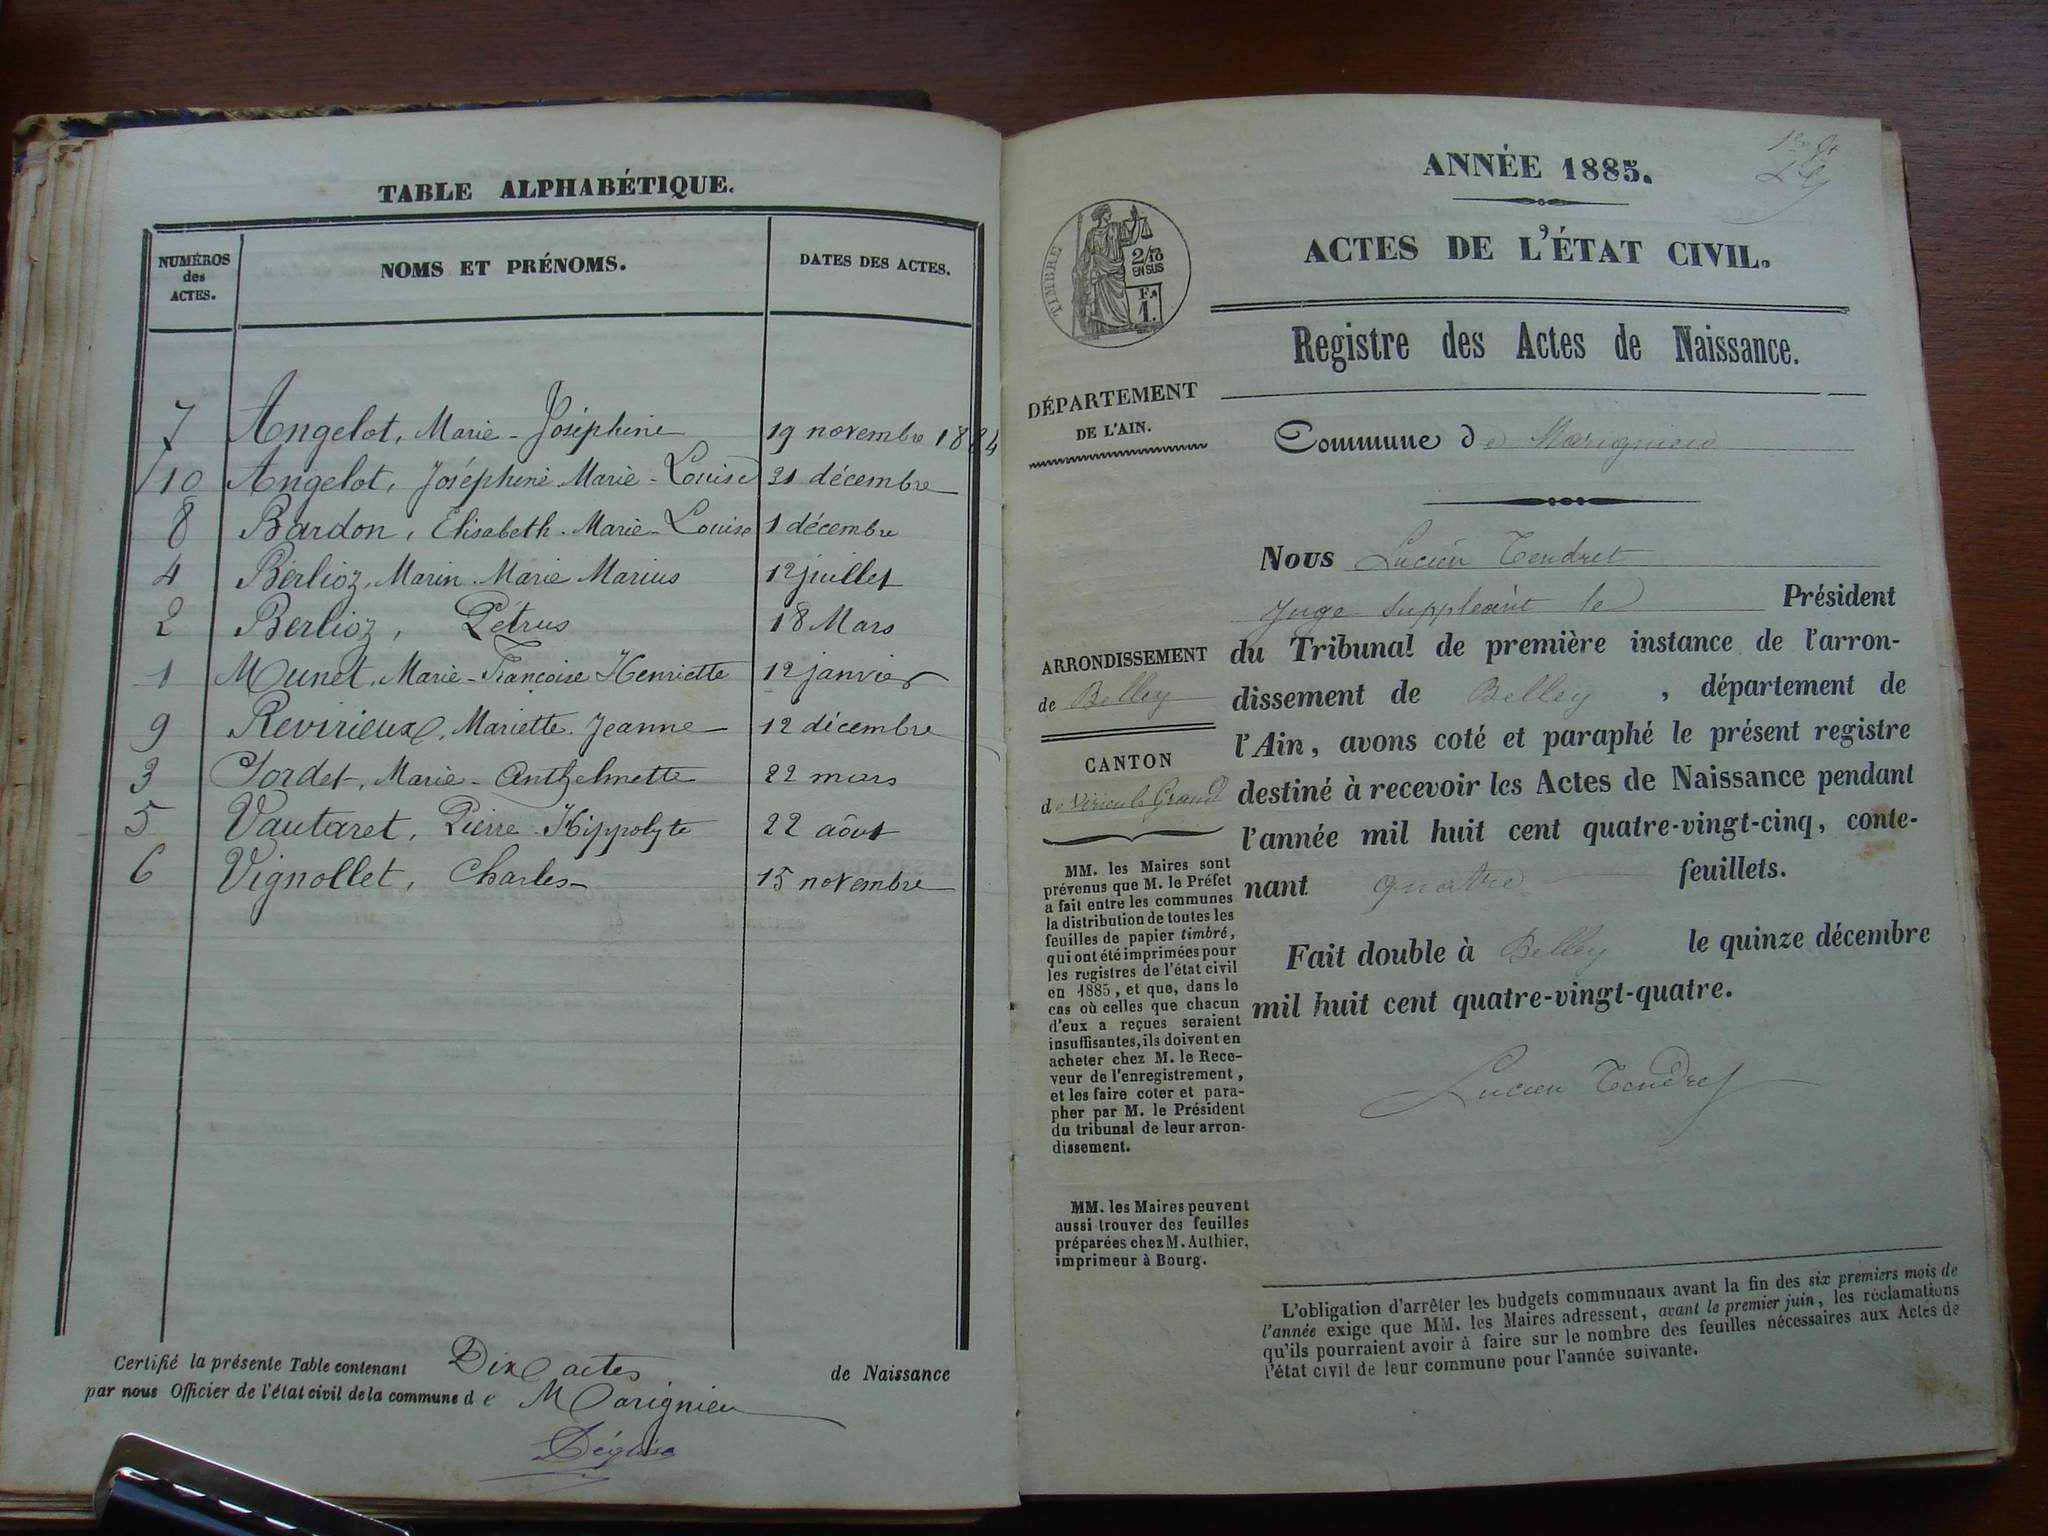 TABLE ALPHABÉTIQUE.
NUMÉROS des ACTES. NOMS ET PRÉNOMS. DATES DES ACTES.
7 Angelot, Marie-Joséphine 19 novembre 1884
10 Angelot, Joséphine Marie-Louise 31 décembre
8 Bardon, Élisabeth-Marie-Louise 1 décembre
4 Berlioz, Marin-Marie Marius 12 juillet
2 Berlioz, Pétrus 18 Mars
1 Munet, Marie-Françoise Henriette 12 janvier
9 Revirieux, Mariette-Jeanne 12 décembre
3 Sordet, Marie-Anthelmette 22 mars
5 Vautaret, Pierre-Hippolyte 22 aôut
6 Vignollet, Charles 15 novembre
Certifié la présente Table contenant Dix actes de Naissance
par nous Officier de l'état civil de la commune de Marignieu
ANNÉE 1885.
ACTES DE L'ÉTAT CIVIL.
TIMBRE
2/10
EN SUS
Fr
1.
Registre des Actes de Naissance.
DÉPARTEMENT
DE L'AIN.
Commune de Marignieu
Nous Lucien Tendret
Juge Suppléant le Président
du Tribunal de première instance de l'arron-
dissement de Belley, département de
l'Ain, avons coté et paraphé le présent registre
destiné à recevoir les Actes de Naissance pendant
l'année mil huit cent quatre-vingt-cinq, conte-
nant quatre feuillets.
Fait double à Belley le quinze décembre
mil huit cent quatre-vingt-quatre.
Lucien Tendret
ARRONDISSEMENT
de Belley
CANTON
de Virieu le Grand
MM. les Maires sont
prévenus que M. le Préfet
a fait entre les communes
la distribution de toutes les
feuilles de papier timbré,
qui ont été imprimées pour
les registres de l'état civil
en 1885, et que, dans le
cas où celles que chacun
d'eux a reçues seraient
insuffisantes, ils doivent en
acheter chez M. le Rece-
veur de l'enregistrement,
et les faire coter et para-
pher par M. le Président
du tribunal de leur arron-
dissement.
MM. les Maires peuvent
aussi trouver des feuilles
préparées chez M. Authier,
imprimeur à Bourg.
L'obligation d'arrêter les budgets communaux avant la fin des six premiers mois de
l'année exige que MM. les Maires adressent, avant le premier juin, les réclamations
qu'ils pourraient avoir à faire sur le nombre des feuilles nécessaires aux Actes de
l'état civil de leur commune pour l'année suivante.